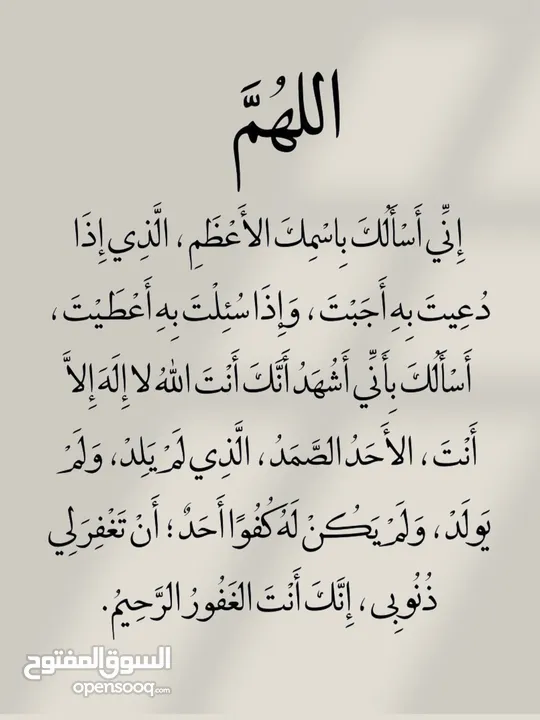 اللهُمَّ
إِنِّي أَسْأَلُكَ بِاسْمِكَ الأَعْظَمِ، الَّذِي إِذَا
دُعِيتَ بِهِ أَجَبْتَ، وَإِذَا سُئِلْتَ بِهِ أَعْطَيْتَ،
أَسْأَلُكَ بِأَنِّي أَشْهَدُ أَنَّكَ أَنْتَ اللهُ لا إِلَهَ إِلاَّ
أَنْتَ، الأَحَدُ الصَّمَدُ، الَّذِي لَمْ يَلِدْ، وَلَمْ
يَولَدْ، وَلَمْ يَكُنْ لَهُ كُفُوًا أَحَدٌ؛ أَنْ تَغْفِرَ لِي
ذُنُوبِي، إِنَّكَ أَنْتَ الغَفُورُ الرَّحِيمُ.
السوق المفتوح
opensooq.com